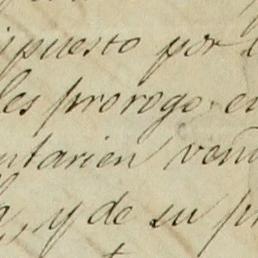 puesto por
les prorogo en
utarien ven
, y de su p